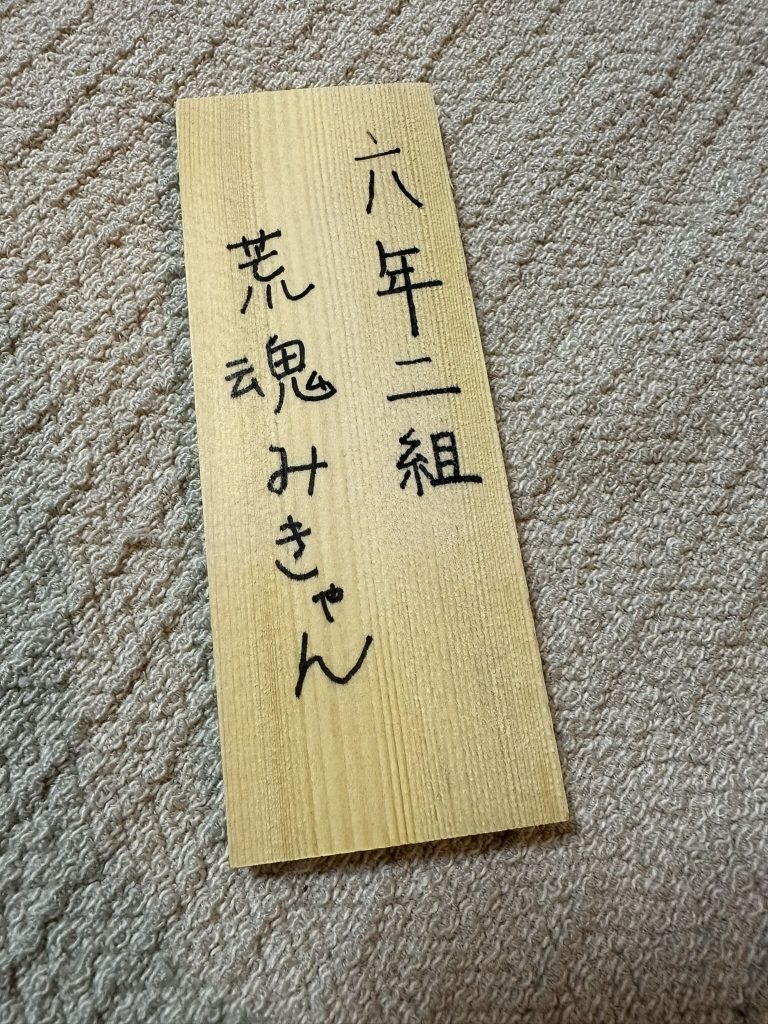 六年二組
荒魂みきゃん